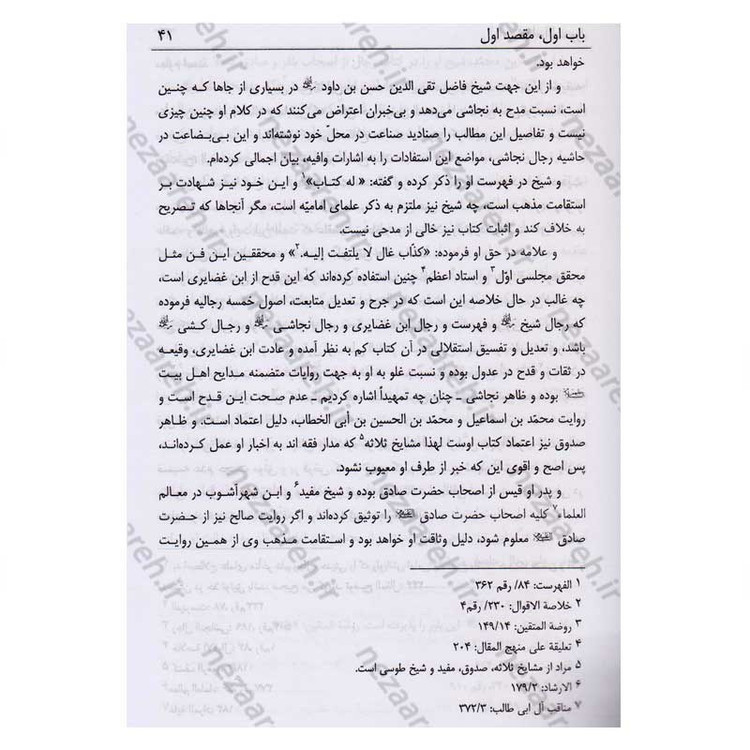 باب اول، مقصد اول ۴۱
خواهد بود.
و از این جهت شیخ فاضل تقی الدین حسن بن داود در بسیاری از جاها که چنین
است، نسبت مدح به نجاشی می‌دهد و بی‌خبران اعتراض می‌کنند که در کلام او چنین چیزی
نیست و تفاصیل این مطالب را صنادید صناعت در محلّ خود نوشته‌اند و این بی‌بضاعت در
حاشیه رجال نجاشی، مواضع این استفادات را به اشارات وافیه، بیان اجمالی کرده‌ام.
و شیخ در فهرست او را ذکر کرده و گفته: «له کتاب»۱ و این خود نیز شهادت بر
استقامت مذهب است، چه شیخ نیز ملتزم به ذکر علمای امامیّه است، مگر آنجاها که تصریح
به خلاف کند و اثبات کتاب نیز خالی از مدحی نیست.
و علامه در حق او فرموده: «کذّاب غال لا یلتفت إلیه.۲» و محققین این فن مثل
محقق مجلسی اوّل۳ و استاد اعظم۴ چنین استفاده کرده‌اند که این قدح از ابن غضایری است،
چه غالب در حال خلاصه این است که در جرح و تعدیل متابعت، اصول خمسه رجالیه فرموده
که رجال شیخ و فهرست و رجال ابن غضایری و رجال نجاشی و رجال کشی
باشد، و تعدیل و تفسیق استقلالی در آن کتاب کم به نظر آمده و عادت ابن غضایری، وقیعه
در ثقات و قدح در عدول بوده و نسبت غلو به او به جهت روایات متضمنه مدایح اهل بیت
بوده و ظاهر نجاشی ـ چنان چه تمهیداً اشاره کردیم ـ عدم صحت این قدح است و
روایت محمّد بن اسماعیل و محمّد بن الحسین بن أبی الخطاب، دلیل اعتماد است. و ظاهر
صدوق نیز اعتماد کتاب اوست لهذا مشایخ ثلاثه۵ که مدار فقه اند به اخبار او عمل کرده‌اند،
پس اصح و اقوی این که خبر از طرف او معیوب نشود.
و پدر او قیس از اصحاب حضرت صادق بوده و شیخ مفید۶ و ابن شهرآشوب در معالم
العلماء۷ کلیه اصحاب حضرت صادق را توثیق کرده‌اند و اگر روایت صالح نیز از حضرت
صادق معلوم شود، دلیل وثاقت او خواهد بود و استقامت مذهب وی از همین روایت
۱ الفهرست: ۸۴/ رقم ۳۶۲
۲ خلاصة الاقوال: ۲۳۰/ رقم۴
۳ روضة المتقین: ۱۴۹/۱۴
۴ تعلیقة علی منهج المقال: ۲۰۴
۵ مراد از مشایخ ثلاثه، صدوق، مفید و شیخ طوسی است.
۶ الارشاد: ۱۷۹/۲
۷ مناقب آل ابی طالب: ۳۷۲/۳
nezaareh.ir